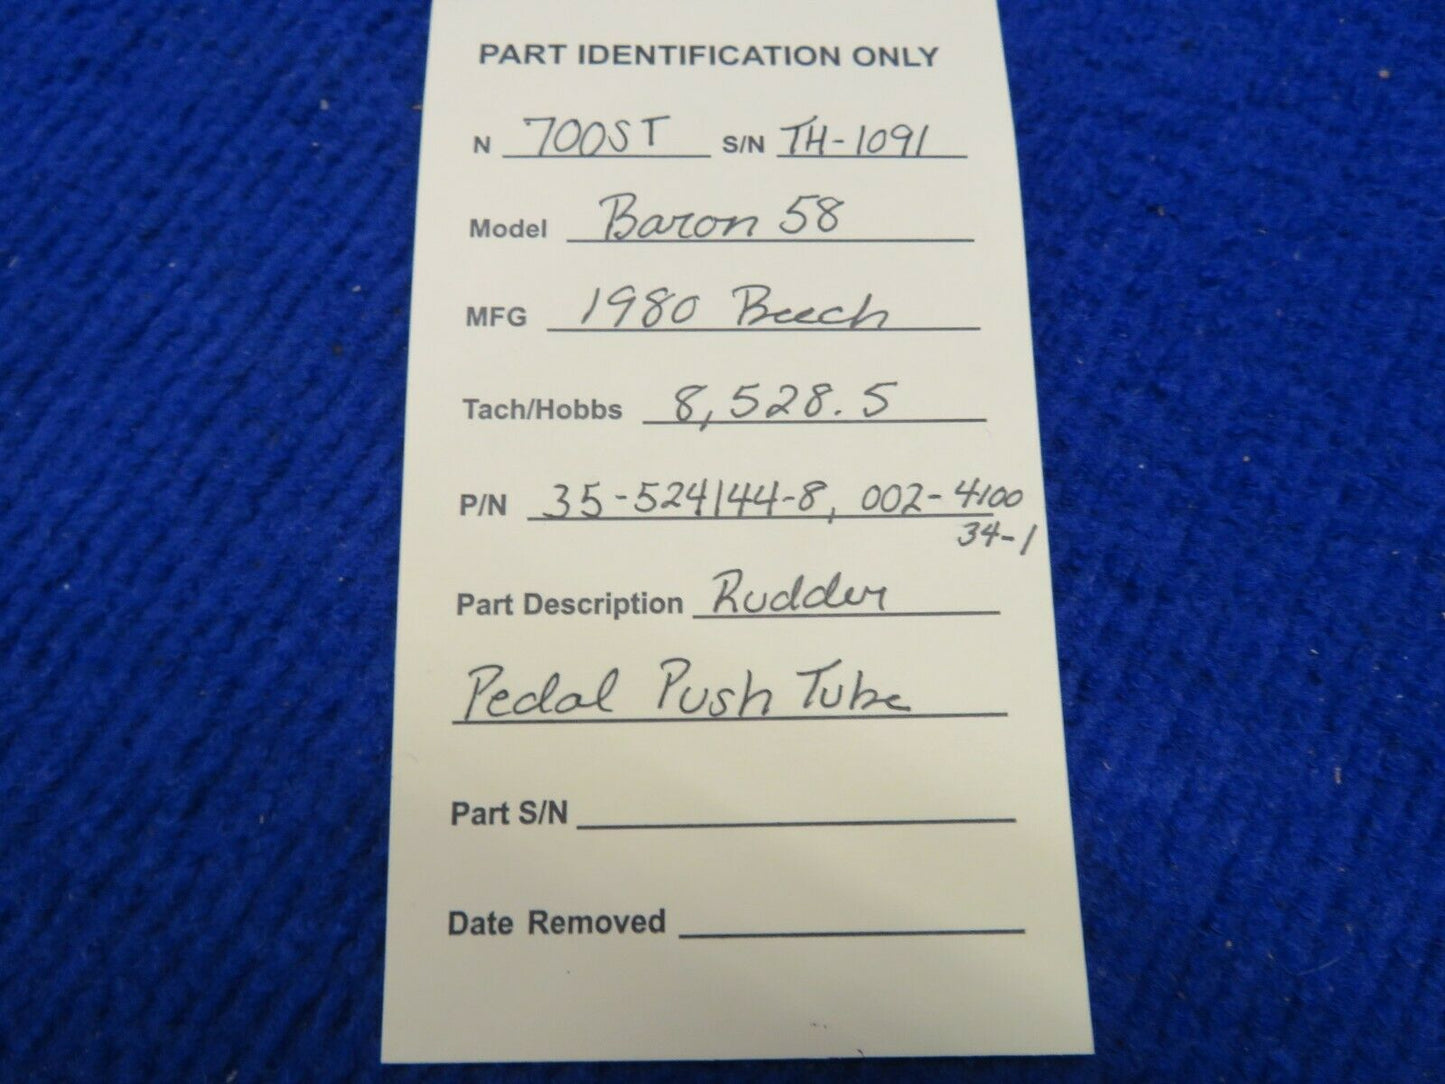 PART IDENTIFICATION ONLY
N 700ST S/N TH-1091
Model Baron 58
MFG 1980 Beech
Tach/Hobbs 8,528.5
P/N 35-524144-8, 002-4100
34-1
Part Description Rudder
Pedal Push Tube
Part S/N
Date Removed